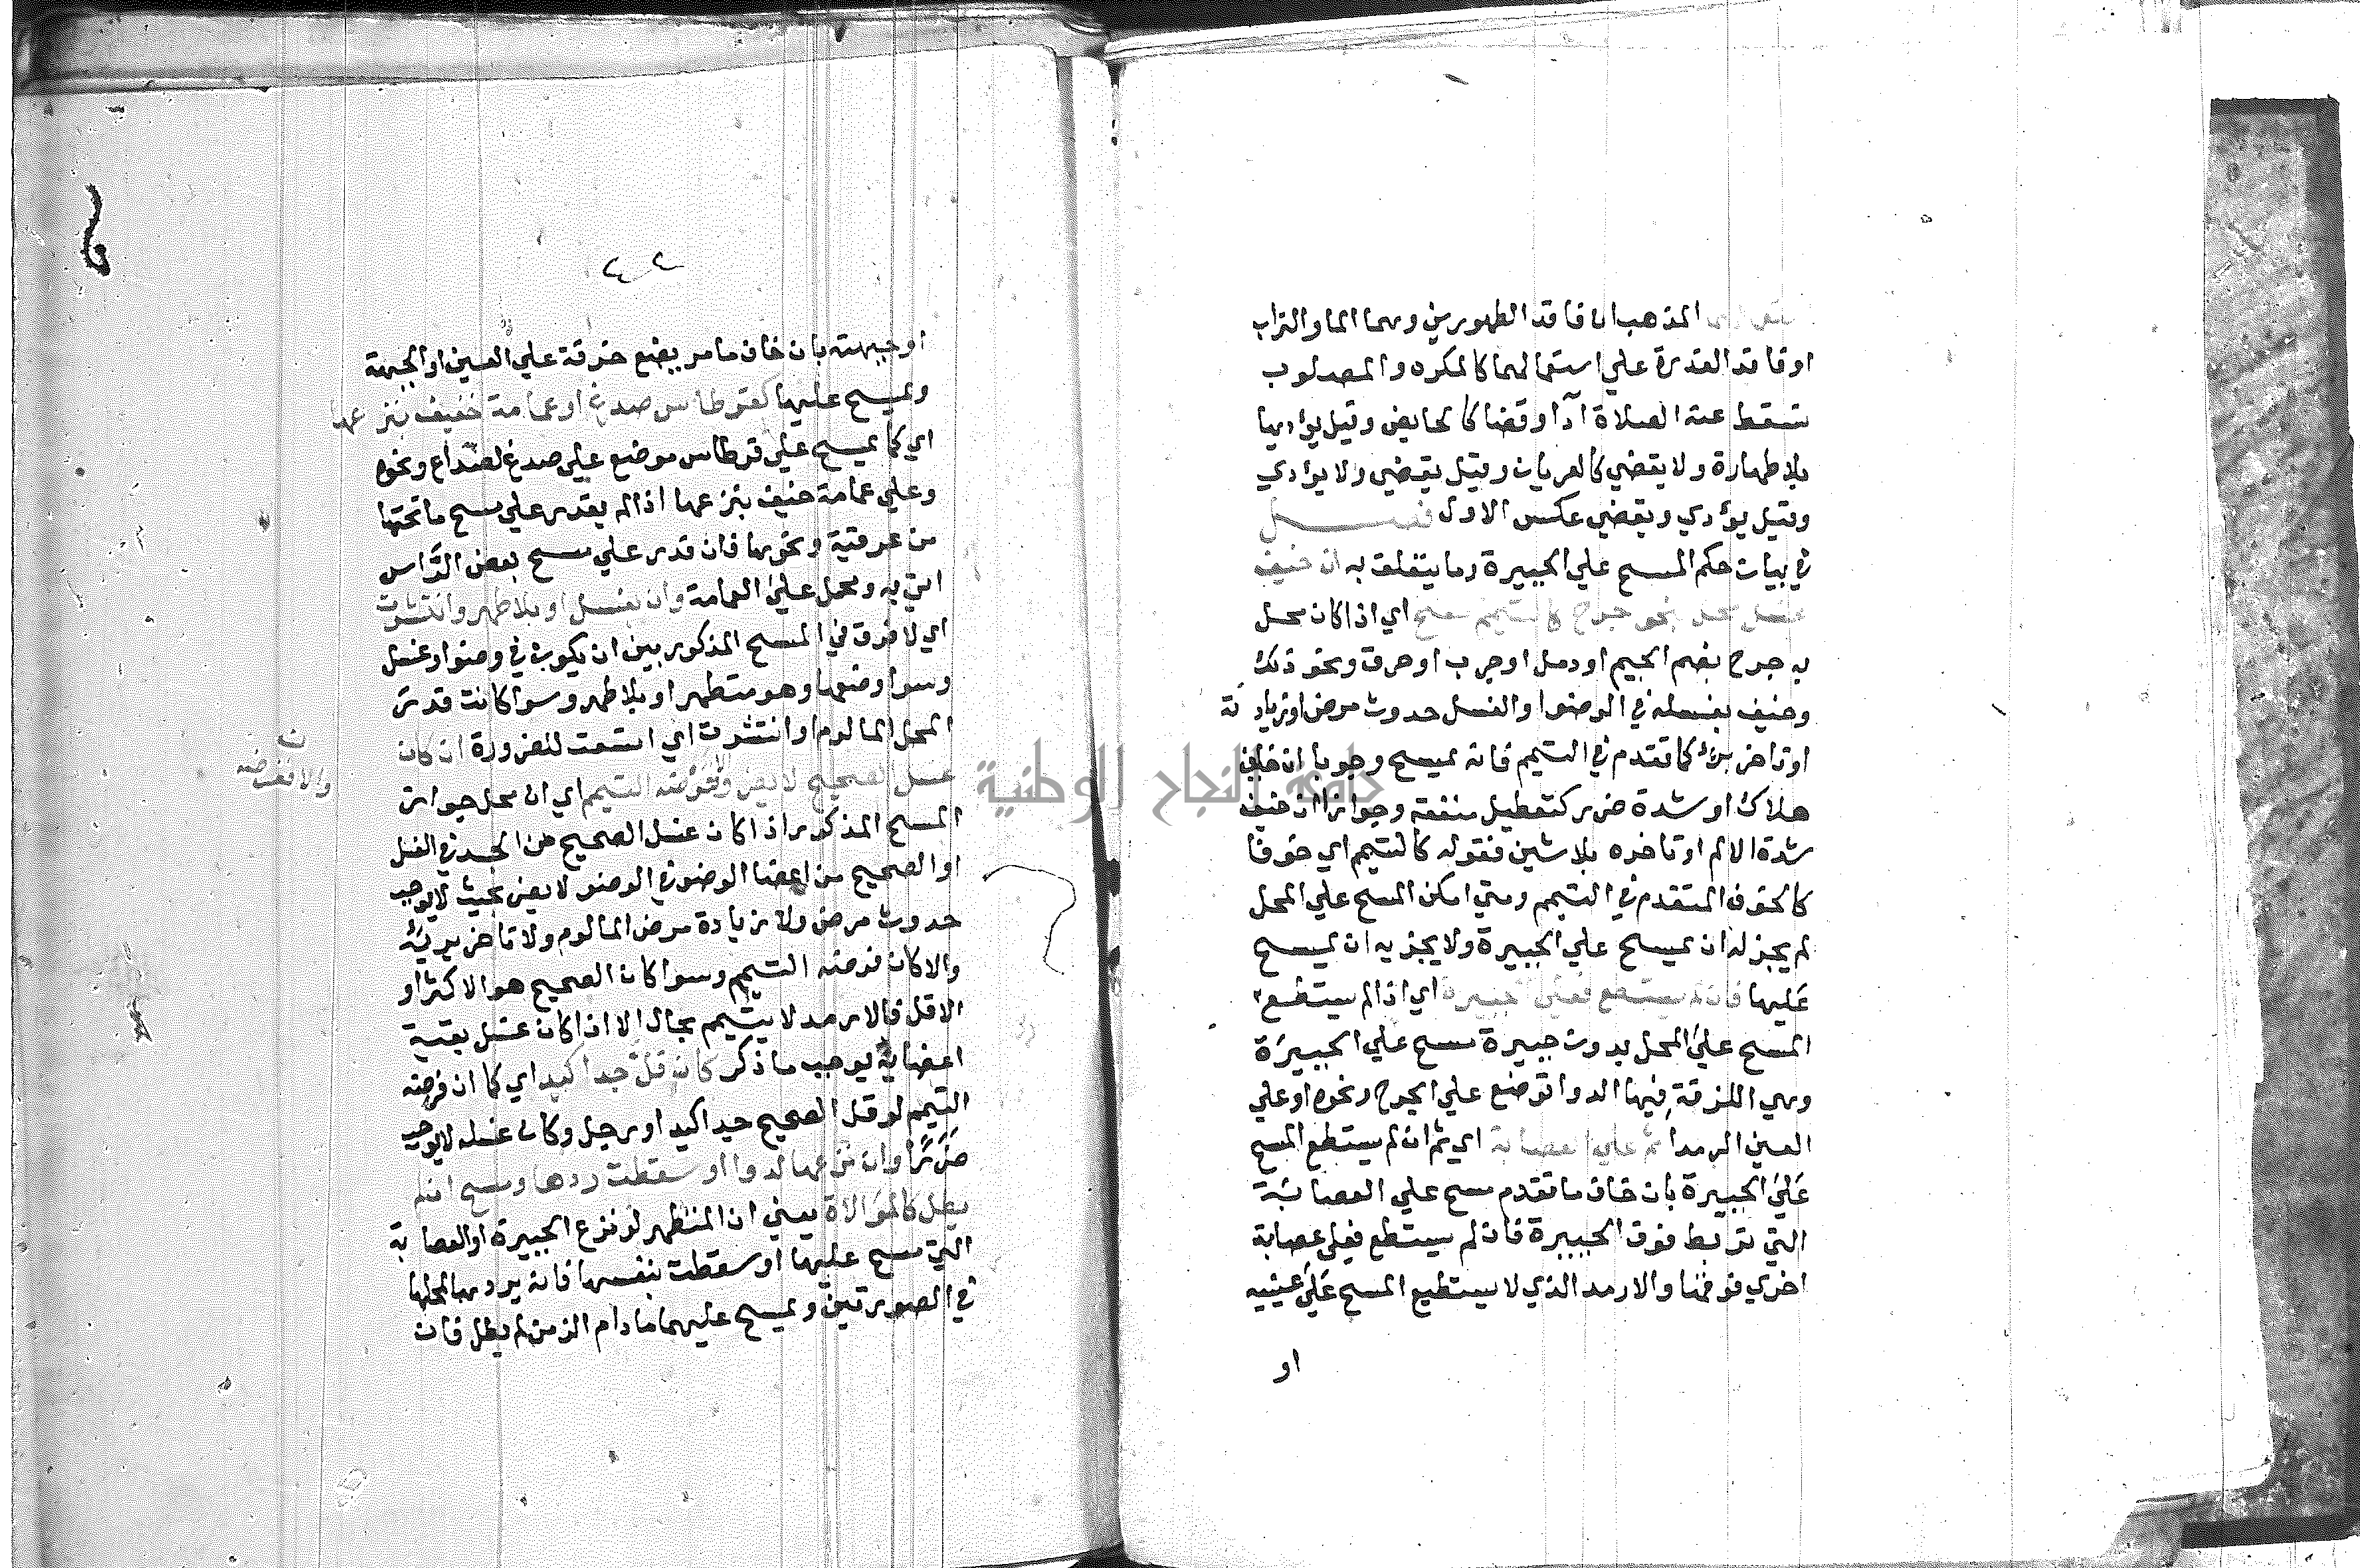 المذهب ان فاقد الطهورين وهما الما والتراب
او فاقد القدرة علي استعمالهما كالمكره والمصلوب
تسقط عنه الصلاة أدآ وقضا كالحايض وقيل يؤديها
بلا طهارة ولا يقضي كالعريان وقيل يقضي ولا يؤدي
وقيل يؤدي ويقضي عكس الاول فصل
في بيان حكم المسح علي الجبيرة وما يتعلق به ان خيف
غسل محل بنحو جرح كالتيمم مسح اي اذا كان محل
به جرح بضم الجيم او دمل او جرب او حرق ونحو ذلك
وخيف بغسله في الوضوا والغسل حدوث مرض او زيادته
او تاخر برء كما تقدم في التيمم فانه يمسح وجوبا ان خيف
هلاك او شدة ضرر كتعطيل منفعة وجوازا ان خيف
شدة الالم او تاخره بلا شين فقوله كالتيمم اي خوفا
كالخوف المتقدم في التيمم ومتي امكن المسح علي المحل
لم يجز له ان يمسح علي الجبيرة ولا يجزيه ان يمسح
عليها فان لم يستطع فعلي الجبيرة اي اذا لم يستطع
المسح علي المحل بدون جبيرة مسح علي الجبيرة
وهي اللزقة فيها الدوا توضع علي الجرح ونحوه او علي
العين الرمدا ثم علي العصابة اي ثم ان لم يستطع المسح
علي الجبيرة بان خاف ما تقدم مسح علي العصابة
التي تربط فوق الجبيرة فان لم يستطع فعلي عصابة
اخري فوقها والارمد الذي لا يستطيع المسح علي عينيه
او
او جبهته بان خاف ما مر يضع خرقة علي العين او الجبهة
ويمسح عليها كقرطاس صدغ او عمامة خيف بنزعها
اي كما يمسح علي قرطاس موضع علي صدغ لصداع ونحوه
وعلي عمامة خيف بنزعها اذا لم يقدر علي مسح ما تحتها
من عرقية ونحوها فان قدر علي مسح بعض الراس
اتي به وكمل علي العمامة وان بغسل او بلا طهر وانتشرت
اي لا فرق في المسح المذكور بين ان يكون في وضوا وغسل
وسوا وضعها وهو متطهر او بلا طهر وسوا كانت قدر
المحل المالوم او انتشرت اي اتسعت للضرورة ان كان
غسل الصحيح لا يضر وفرضه التيمم اي ان محل جواز
المسح المذكور اذا كان غسل الصحيح من الجسد في الغسل
او الصحيح من اعضا الوضو في الوضو لا يضر بحيث لا يوجب
حدوث مرض ولا زيادة مرض المالوم ولا تاخر بريه
والا كان فرضه التيمم وسوا كان الصحيح هو الاكثر او
الاقل فالارمد لا يتيمم بحال الا اذا كان غسل بقية
اعضايه يوجب ما ذكر كان قل جدا كيد اي كما ان فرضه
التيمم لو قل الصحيح جدا كيد او رجل وكان غسله لا يوجب
ضررا وان نزعها لدوا او سقطت ردها ومسح ان لم
يطل كالموالاة يعني ان المتطهر لو نزع الجبيرة او العصابة
التي مسح عليها او سقطت بنفسها فانه يردها لمحلها
في الصورتين ويمسح عليهما ما دام الزمن لم يطل فان
والا ففرضه
جامعة النجاح الوطنية